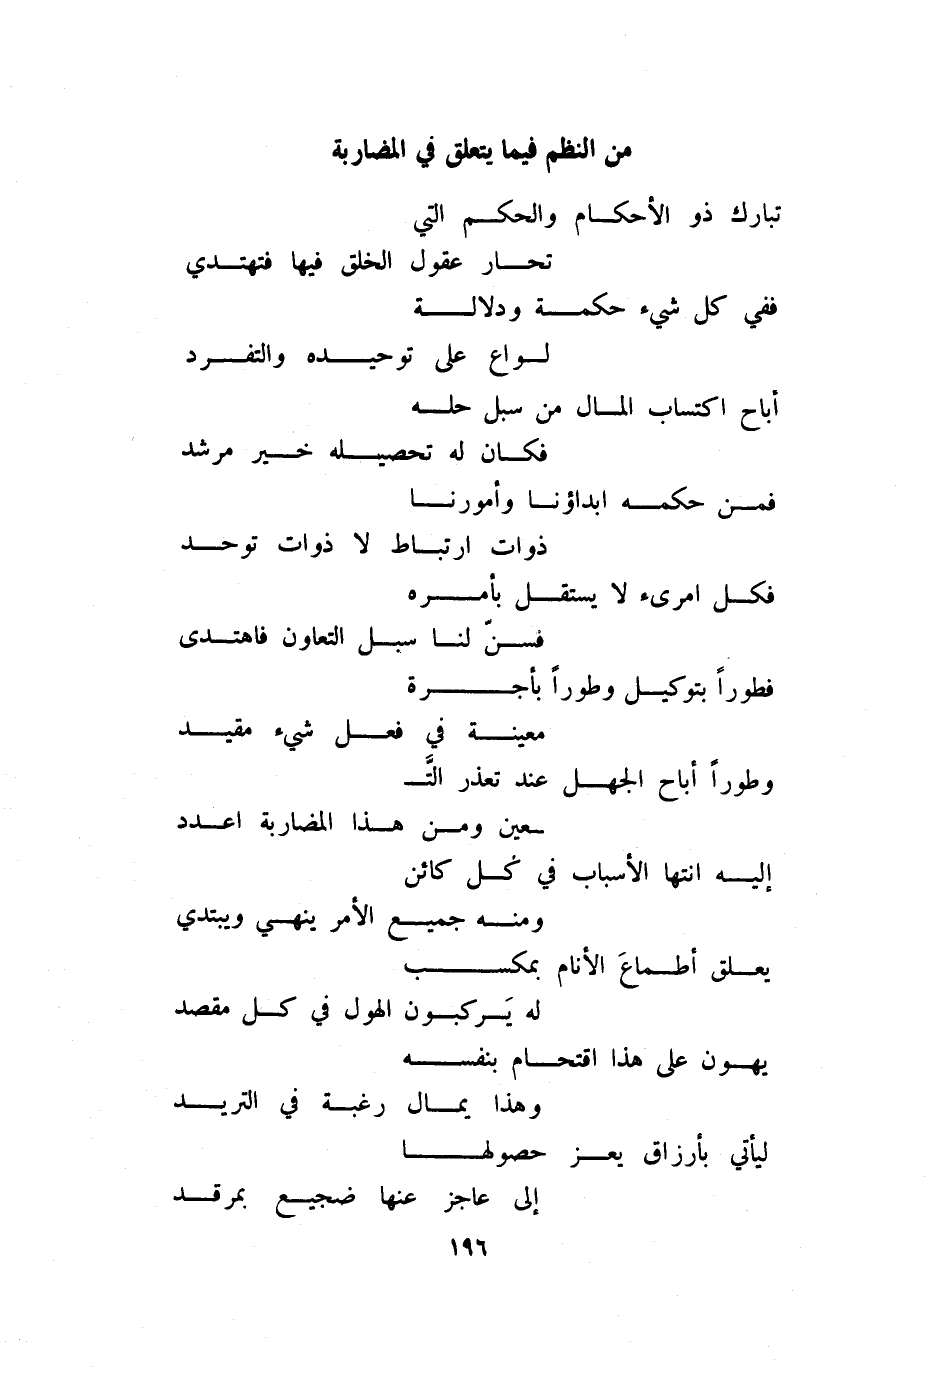 من النظم فيما يتعلق في المضاربة
تبارك ذو الأحكام والحكم التي
تحار عقول الخلق فيها فتهتدي
ففي كل شيء حكمة ودلالة
لواع على توحيده والتفرد
أباح اكتساب المال من سبل حله
فكان له تحصيله خير مرشد
فمن حكمه ابداؤنا وأمورنا
ذوات ارتباط لا ذوات توحد
فكل امرىء لا يستقل بأمره
فسنّ لنا سبل التعاون فاهتدى
فطوراً بتوكيل وطوراً بأجرة
معينة في فعل شيء مقيد
وطوراً أباح الجهل عند تعذر التَّـ
ـعين ومن هذا المضاربة اعدد
إليه انتها الأسباب في كُل كائن
ومنه جميع الأمر ينهي ويبتدي
يعلق أطماعَ الأنام بمكسب
له يَركبون الهول في كل مقصد
يهون على هذا اقتحام بنفسه
وهذا بمال رغبة في التريد
ليأتي بأرزاق يعز حصولها
إلى عاجز عنها ضجيع بمرقد
١٩٦